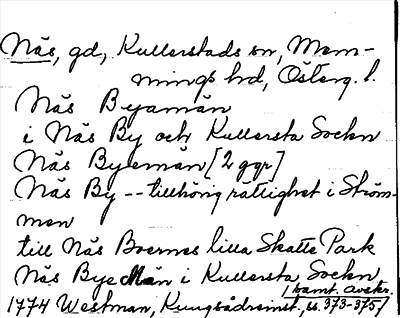 Näs, gd, Kullerstads sn, Mem-
mings hd, Österg. l.
Näs Byamän
i Näs By och Kullersta Sockn
Näs Byemän [2 ggr]
Näs By -- tillhörig rättighet i Ström-
men
till Näs Boernes lilla Skatte Park
Näs Bye Män i Kullersta Sockn
1774 Westman, Kungsådreinst., ss. 373-375
/samt. avskr.